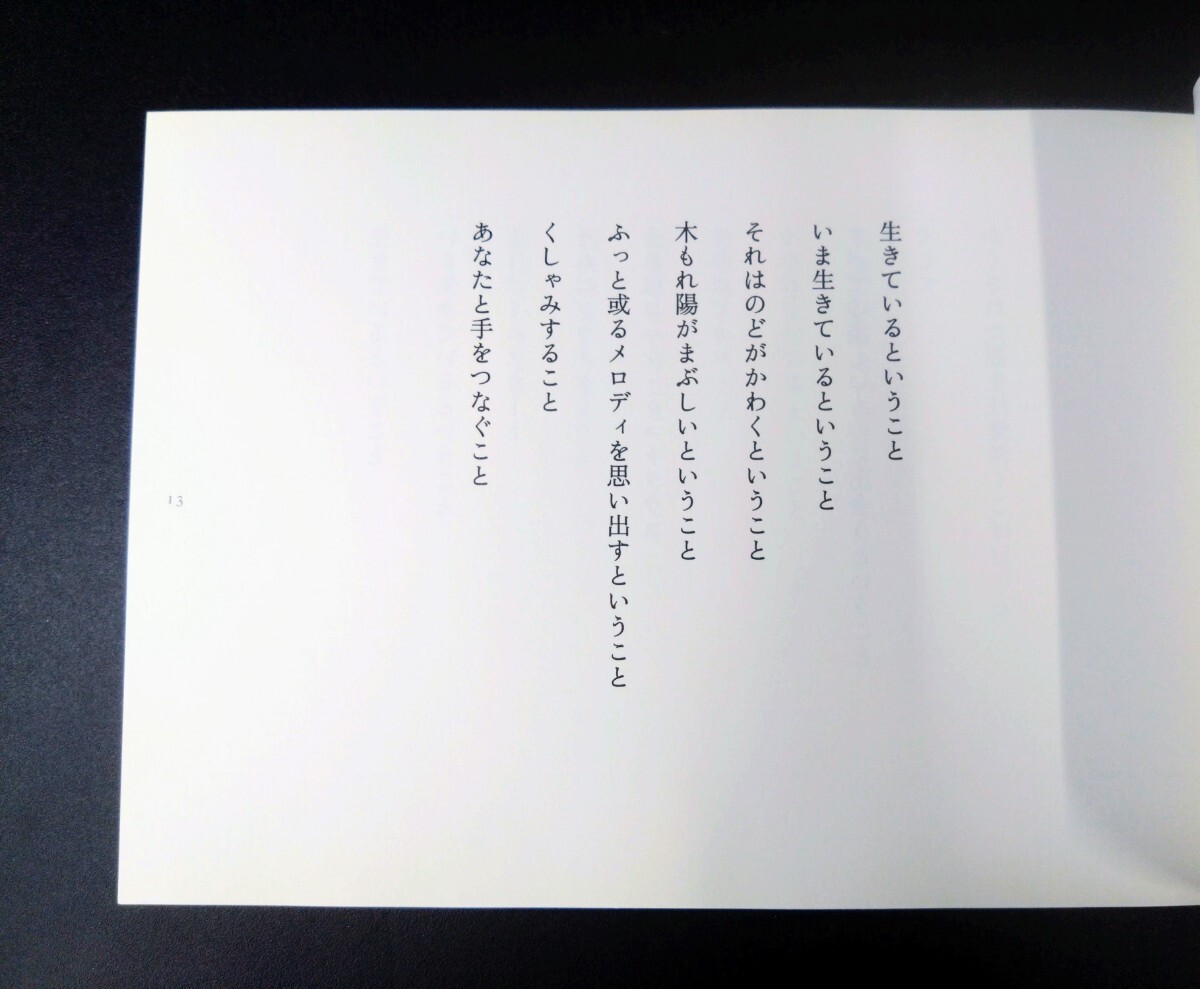 生きているということ
いま生きているということ
それはのどがかわくということ
木もれ陽がまぶしいということ
ふっと或るメロディを思い出すということ
くしゃみすること
あなたと手をつなぐこと
13